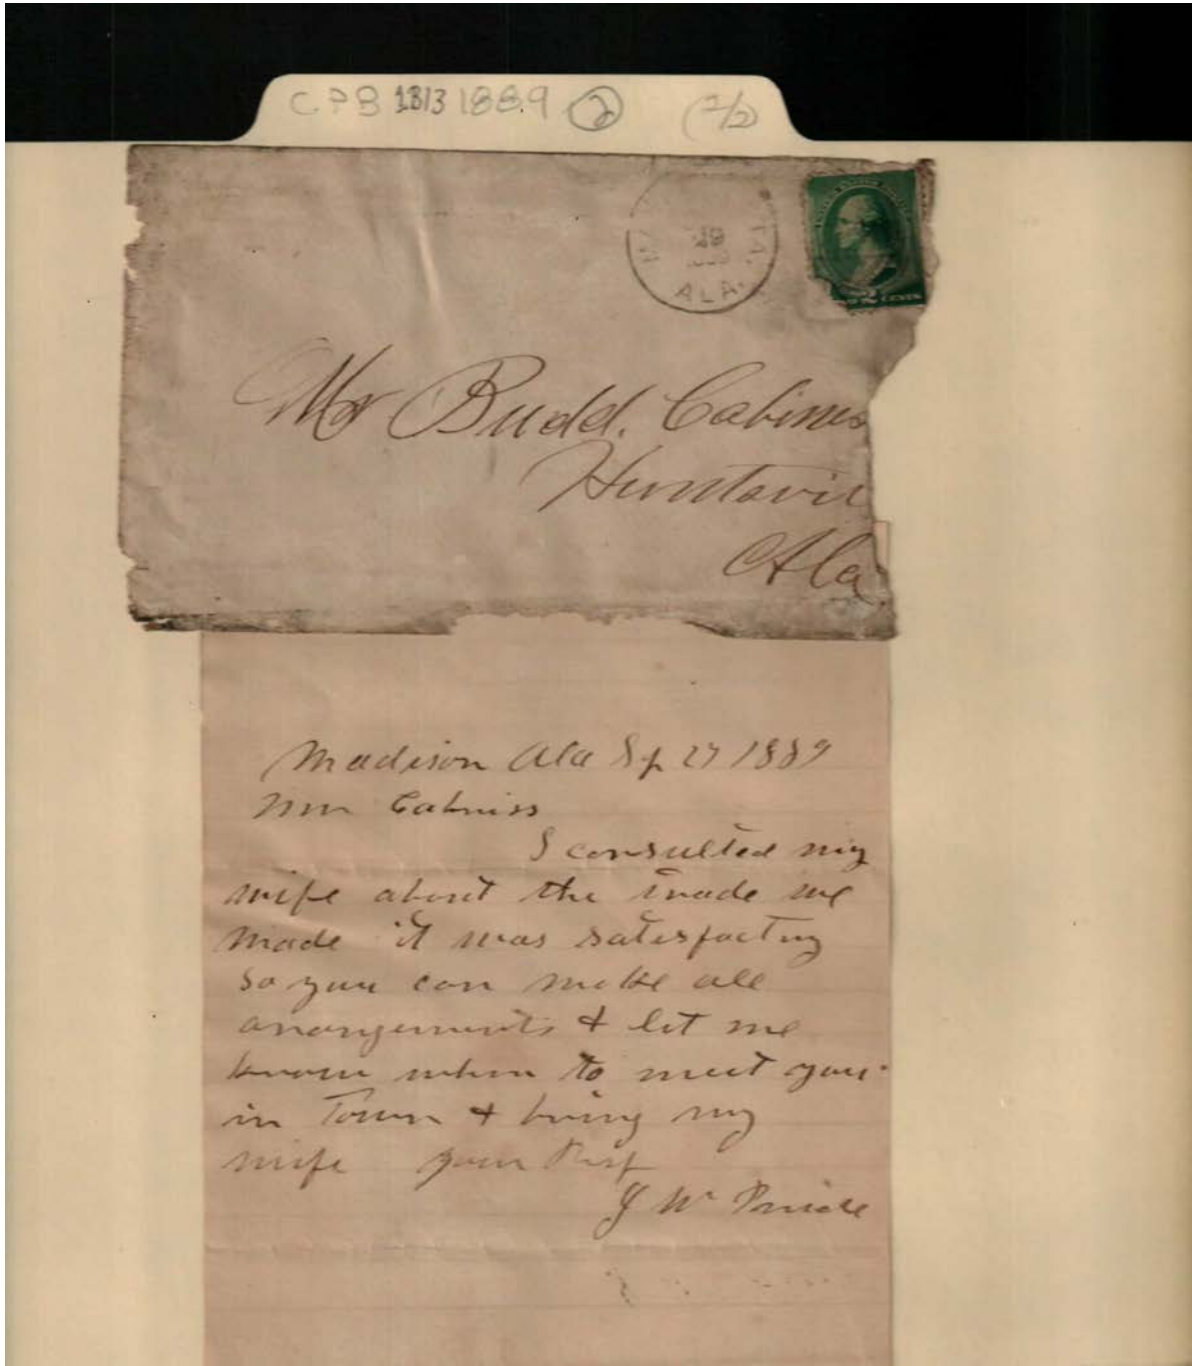 CPB 1813 1889 2 (2/2)
ALA.
2 CENTS
Mr Budd. Cabinis
Huntsvil
Ala
Madison Ala Sp 27 1889
Mr Cabniss
I consulted my
wife about the trade we
made it was satesfactry
so you can make all
arrangements & let me
know when to meet you
in Town & bring my
wife your Resf
J W Pride